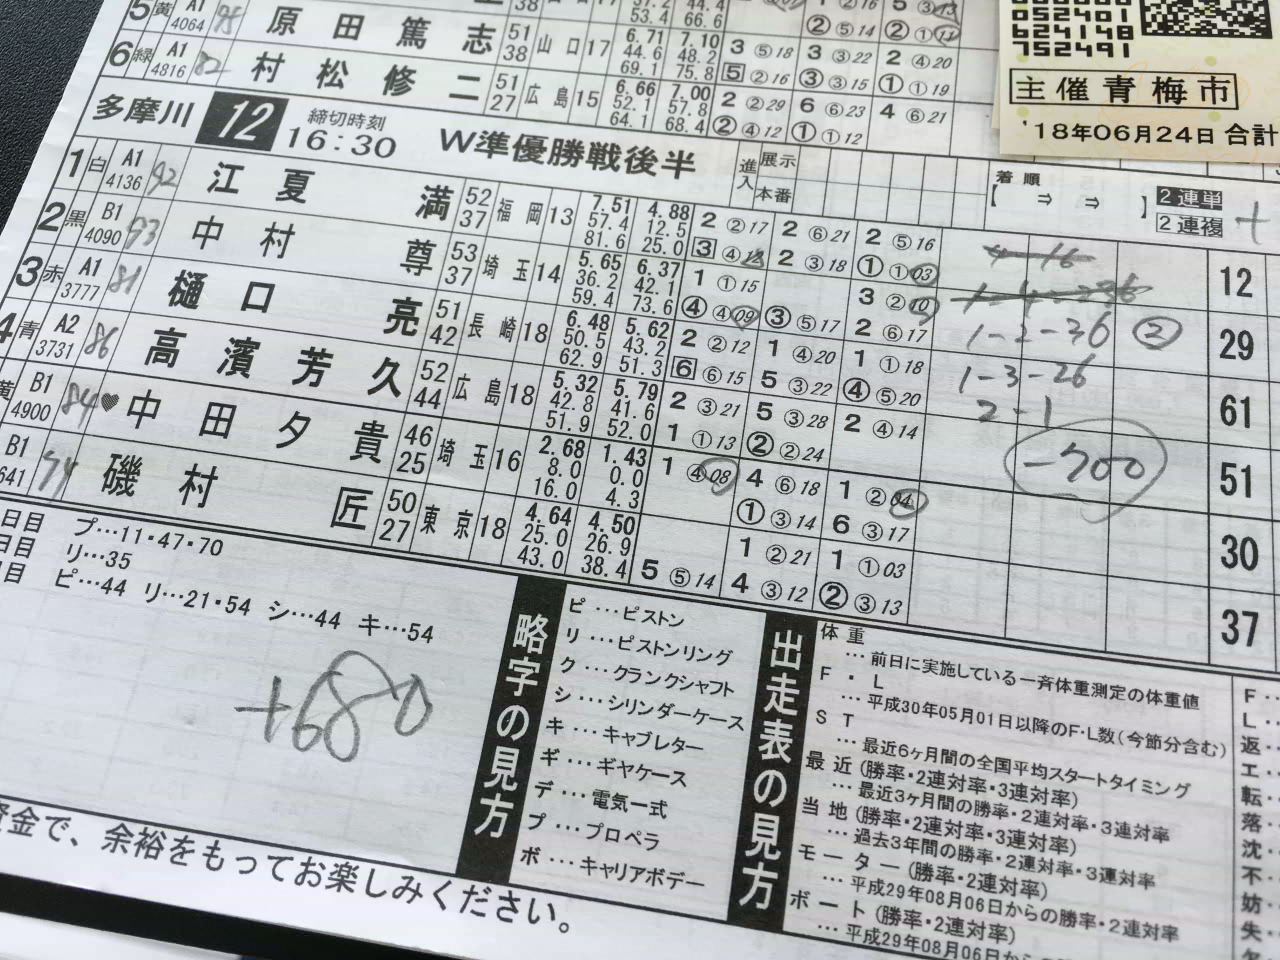 5 黄 A1 4064 原田篤志 51 38 山口17 53.4 66.6
6 緑 A1 4816 82 村松修二 51 27 広島15 6.66 52.1 64.1 7.00 57.8 68.4
6.71 44.6 69.1 7.10 48.2 75.8 3 ⑤18 3 ③22 2 ④20
5 ②16 ③ ③15 ① ①19
2 ②29 6 ⑥23 4 ⑥21
② ④12 ① ①12
052401
624148
752491
主催青梅市
'18年06月24日 合計
多摩川 12 締切時刻 16:30 W準優勝戦後半
進入 展示 本番
着順
【 ⇒ ⇒ 】
2連単
2連複
1 白 A1 4136 92 江夏満 52 37 福岡13 7.51 57.4 81.6 4.88 12.5 25.0 2 ②17 2 ⑥21 2 ⑤16 12
2 黒 B1 4090 93 中村尊 53 37 埼玉14 5.65 36.2 59.4 6.37 42.1 73.6 1 ①15 3 ②10 29
3 赤 A1 3777 81 樋口亮 51 42 長崎18 6.48 50.5 62.9 5.62 43.2 51.3 2 ②12 1 ④20 1 ①18 61
4 青 A2 3731 86 高濱芳久 52 44 広島18 5.32 42.8 51.9 5.79 41.6 52.0 2 ③21 5 ③28 2 ④14 51
黄 B1 4900 84 ♥中田夕貴 46 25 埼玉16 2.68 8.0 16.0 1.43 0.0 4.3 1 ④08 4 ⑥18 1 ②04 30
B1 641 94 磯村匠 50 27 東京18 4.64 25.0 43.0 4.50 26.9 38.4 1 ②21 1 ①03 37
1-2-36 ②
1-3-26
2-1
-700
日目 プ…11・47・70
日目 リ…35
日目 ピ…44 リ…21・54 シ…44 キ…54
+680
略字の見方
ピ…ピストン
リ…ピストンリング
ク…クランクシャフト
シ…シリンダーケース
キ…キャブレター
ギ…ギヤケース
デ…電気一式
プ…プロペラ
ボ…キャリアボデー
出走表の見方
体重
…前日に実施している一斉体重測定の体重値
F・L
…平成30年05月01日以降のF・L数(今節分含む)
ST
…最近6ヶ月間の全国平均スタートタイミング
最近(勝率・2連対率・3連対率)
…最近3ヶ月間の勝率・2連対率・3連対率
当地(勝率・2連対率・3連対率)
…過去3年間の勝率・2連対率・3連対率
モーター(勝率・2連対率)
…平成29年08月06日からの勝率・2連対率
ボート(勝率・2連対率)
…平成29年08月06日からの
F…
L…
返…
エ…
転…
落…
沈…
不…
妨…
失…
欠…
資金で、余裕をもってお楽しみください。